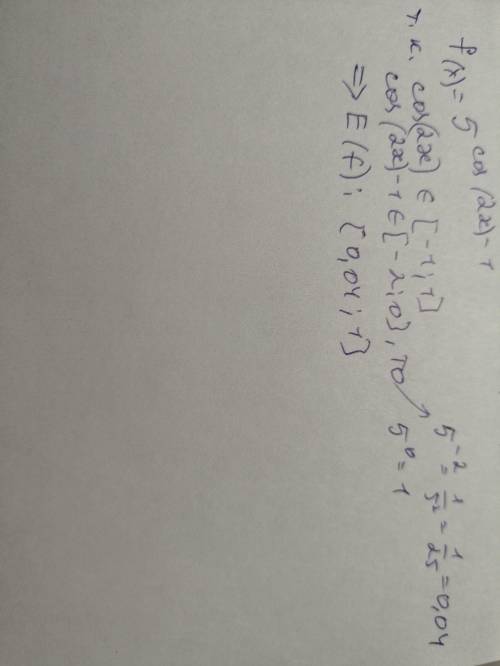 f(x) = 5 cos(2x)-1
т. к. cos(2x) ∈ [-1; 1]
cos(2x)-1 ∈ [-2; 0], то
5⁻² = 1/5² = 1/25 = 0,04
5⁰ = 1
=> E(f): [0,04; 1]